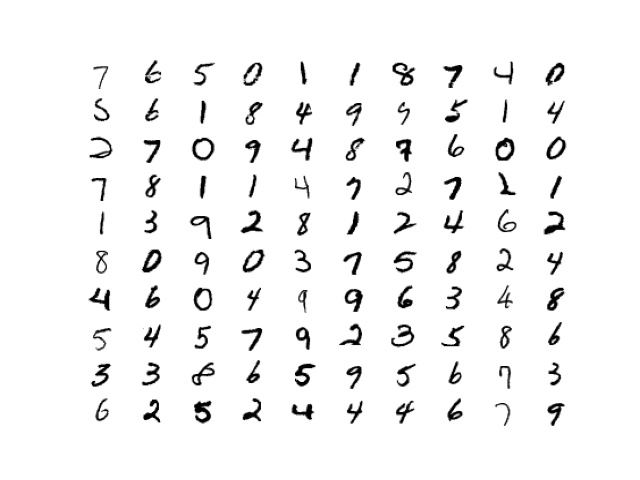 7 6 5 0 1 1 8 7 4 0
5 6 1 8 4 9 9 5 1 4
2 7 0 9 4 8 7 6 0 0
7 8 1 1 4 7 2 7 2 1
1 3 9 2 8 1 2 4 6 2
8 0 9 0 3 7 5 8 2 4
4 6 0 4 9 9 6 3 4 8
5 4 5 7 9 2 3 5 8 6
3 3 8 6 5 9 5 6 7 3
6 2 5 2 4 4 4 6 7 9